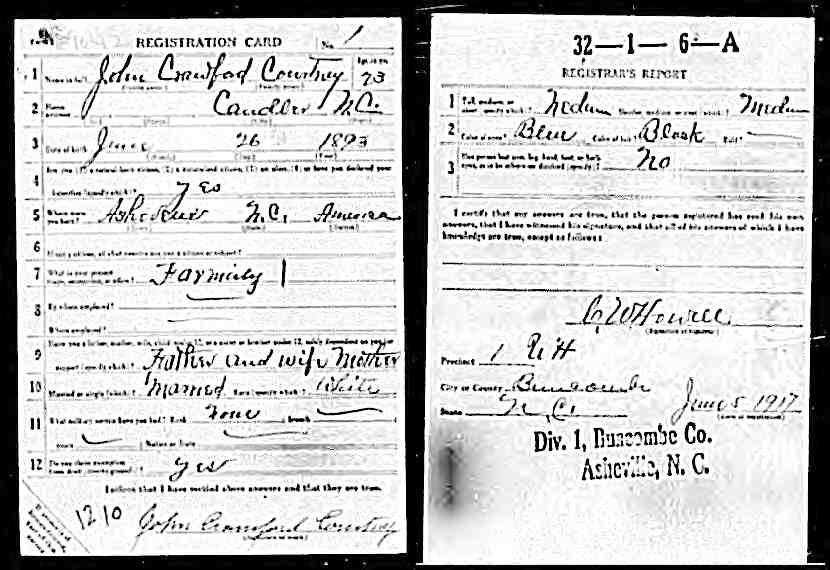 REGISTRATION CARD No. 1
1 Name in full John Crawford Courtney 23
2 Home address Candler N.C.
3 Date of birth June 26 1893
4 Are you (1) a natural-born citizen, (2) a naturalized citizen, (3) an alien, (4) or have you declared your
intention (specify which)? Yes
5 Where were you born? Asheville N.C. America
6 If not a citizen, of what country are you a citizen or subject?
7 What is your present trade, occupation, or office? Farming 1
8 By whom employed?
Where employed?
9 Have you a father, mother, wife, child under 12, or a sister or brother under 12, solely dependent on you for
support (specify which)? Father and wife Mother
10 Married or single (which)? Married Race (specify which)? White
11 What military service have you had? Rank None ; branch
; years ; Nation or State
12 Do you claim exemption from draft (specify grounds)? Yes
I affirm that I have verified above answers and that they are true.
1210
John Crawford Courtney
32—1—6—A
REGISTRAR'S REPORT
1 Tall, medium, or short (specify which)? Medium Slender, medium, or stout (which)? Medium
2 Color of eyes? Blue Color of hair? Black Bald?
3 Has person lost arm, leg, hand, foot, or both eyes, or is he otherwise disabled (specify)? No
I certify that my answers are true, that the person registered has read his own
answers, that I have witnessed his signature, and that all of his answers of which I have
knowledge are true, except as follows:
C. W. Howell
(Signature of registrar)
Precinct 1
City or County Buncombe
State N. C. June 5 1917
(Date of registration)
Div. 1, Buncombe Co.
Asheville, N. C.